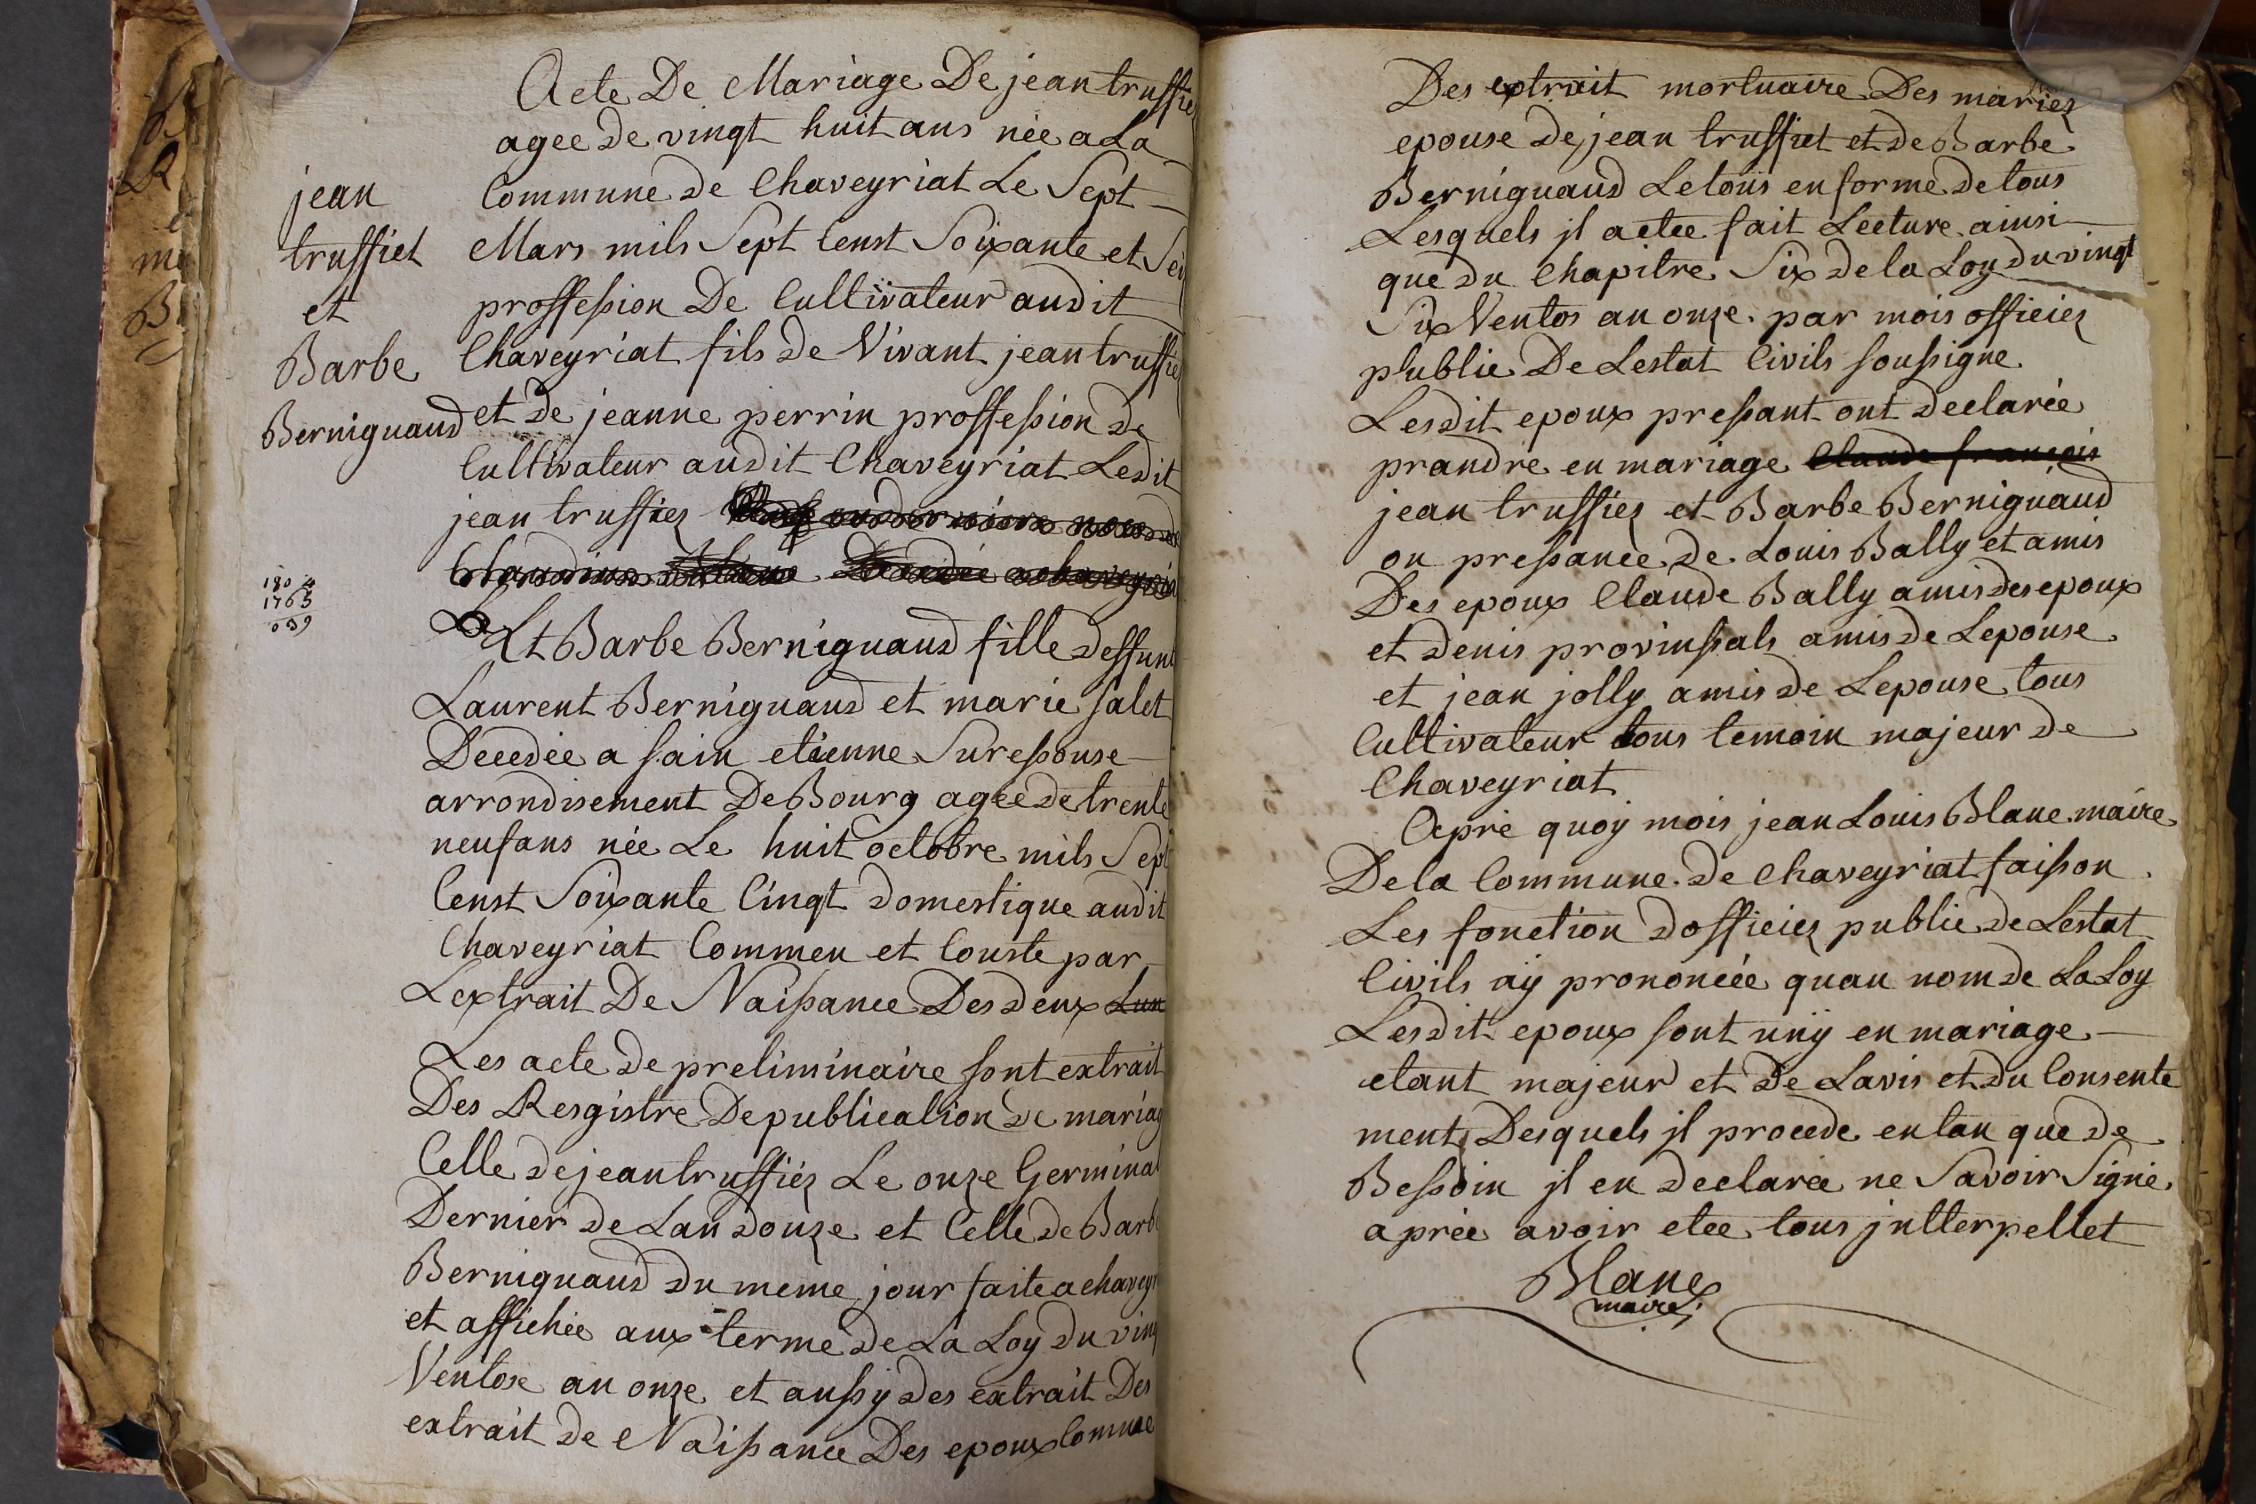 Acte De Mariage De jean truffiez
agee De vingt huit ans née a La
Commune De Chaveyriat Le Sept
Mars mils Sept Censt Soixante et Sei
proffession De Cultivateur audit
Chaveyriat fils De Vivant jean truffie
et De jeanne perrin proffession De
Cultivateur audit Chaveyriat Ledit
jean truffiez
Et Barbe Berniguaud fille Deffunt
Laurent Berniguaud et marie salet
Decedée a sain etienne Suressouse
arrondisement De Bourg agee De trente
neuf ans née Le huit octobre mils Sept
Censt Soixante Cinqt Domestique audit
Chaveyriat Commen et Conste par
Lextrait De Naissance Des Deux Lun
Les acte De preliminaire sont extrait
Des Resgistre De publication De mariag
Celle De jean truffiez Le onze Germinal
Dernier De Lan Douze et Celle De Barbe
Berniguaud Du meme jour faite a chavey
et affichée aux terme De La Loy Du vin
Ventose an onze et aussy Des extrait Des
extrait De Naissance Des epoux Comme
jean
truffiet
et
Barbe
Berniguaud
1804
1765
039
Des extrait mortuaire Des mariez
epouse De jean truffiet et De Barbe
Berniguaud Letous en forme De tous
Lesquels jl a etee fait Lecture ainsi
que Du Chapitre Six De la Loy Du vingt
Six Ventos an onze par mois officiez
publie De Lestat Civils soussigne
Lesdit epoux pressant ont Declarée
prandre en mariage Claude françois
jean truffiez et Barbe Berniguaud
on pressance De Louis Bally et amis
Des epoux Claude Bally amis Des epoux
et Denis provinssals amis De Lepouse
et jean jolly amis De Lepouse tous
Cultivateur tous temoin majeur De
Chaveyriat
Aprè quoy mois jean Louis Blanc maire
De la Commune De Chaveyriat faisson
Les fonction Dofficiez publie De Lestat
Civils aÿ prononcée quau nom De La Loy
Lesdit epoux sont unÿ en mariage
etant majeur et De Lavis et Du Consente
ment Desquels jl procede en tan que De
Bessoin jl en Declarée ne Savoir Signé
aprée avoir etee tous jnterpellet
Blanc
maire